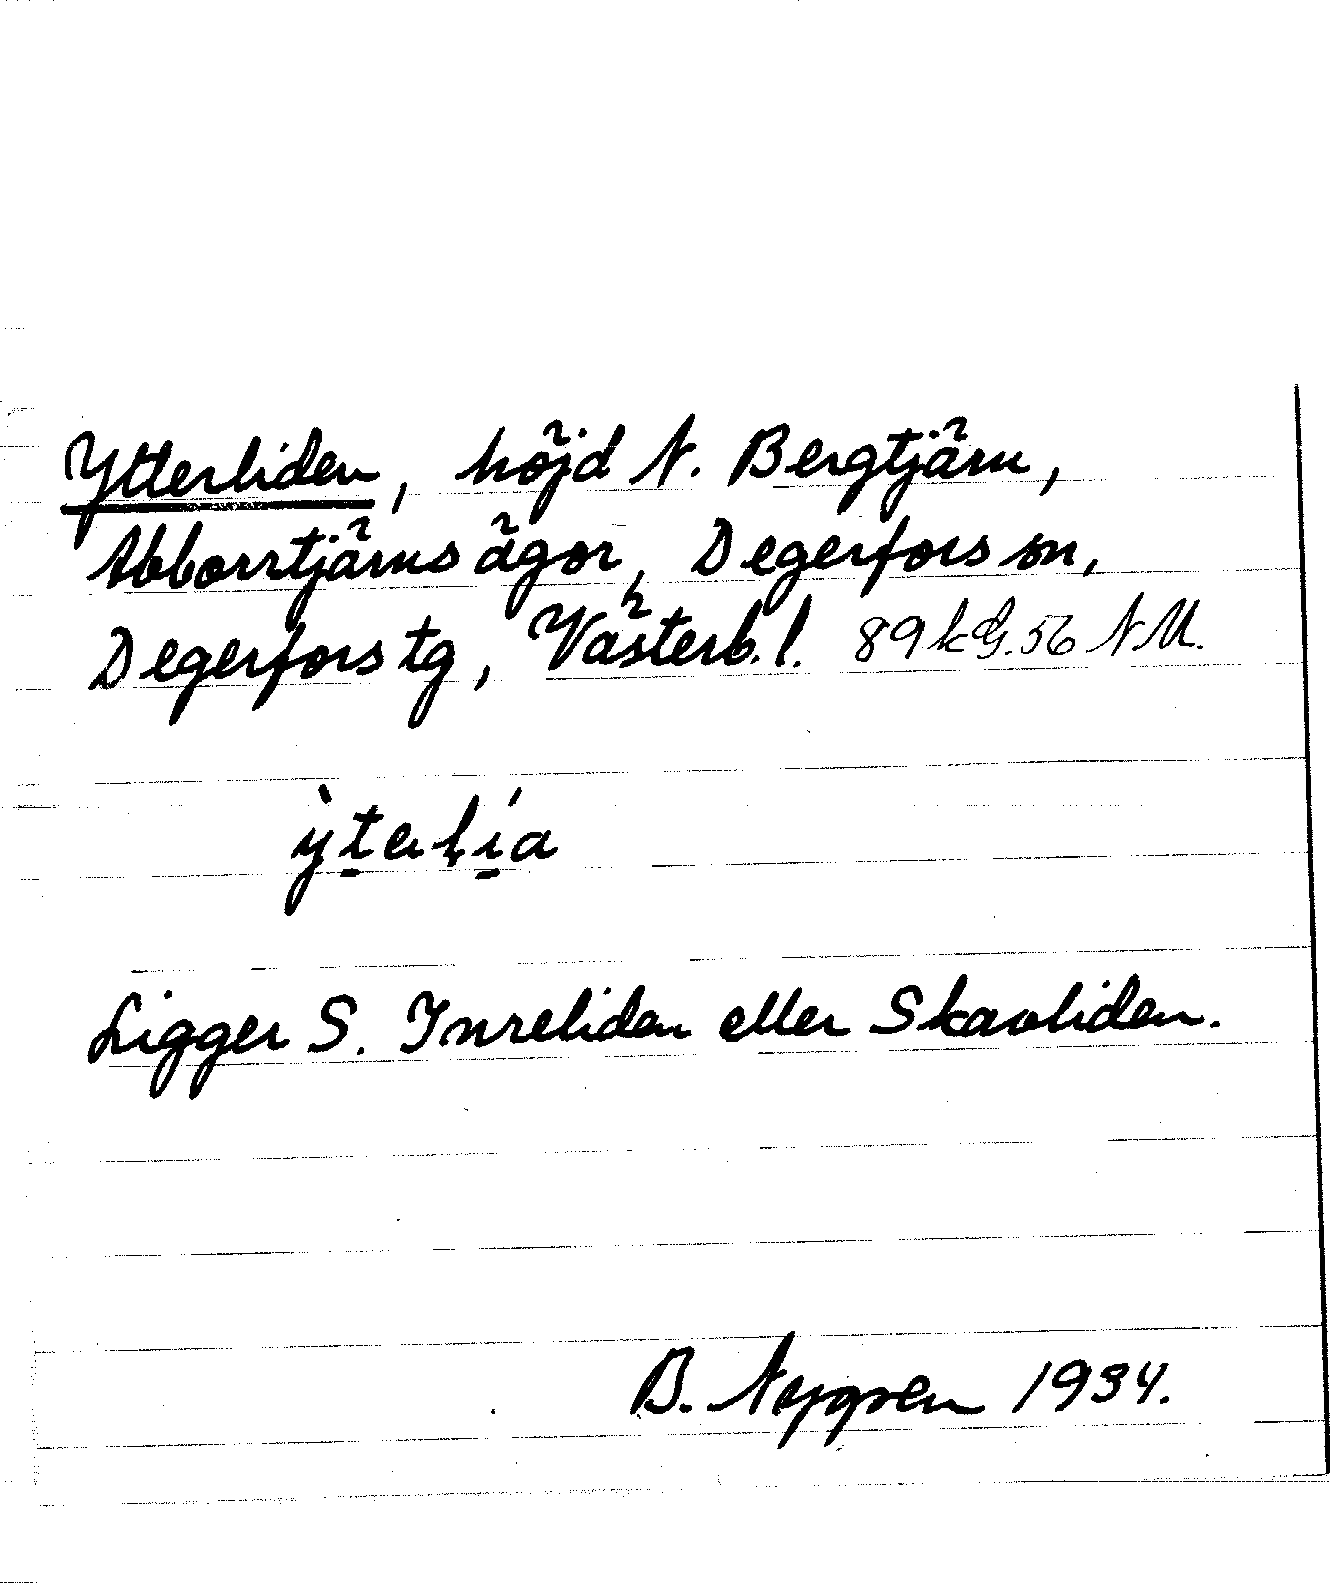 Ytterliden, höjd N. Bergtjärn,
Abborrtjärns ägor, Degerfors sn,
Degerfors tg, Västerb. l. 89 k G. 56 N M.
Ligger S. Inreliden eller Skavliden.
B. Nygren 1934.